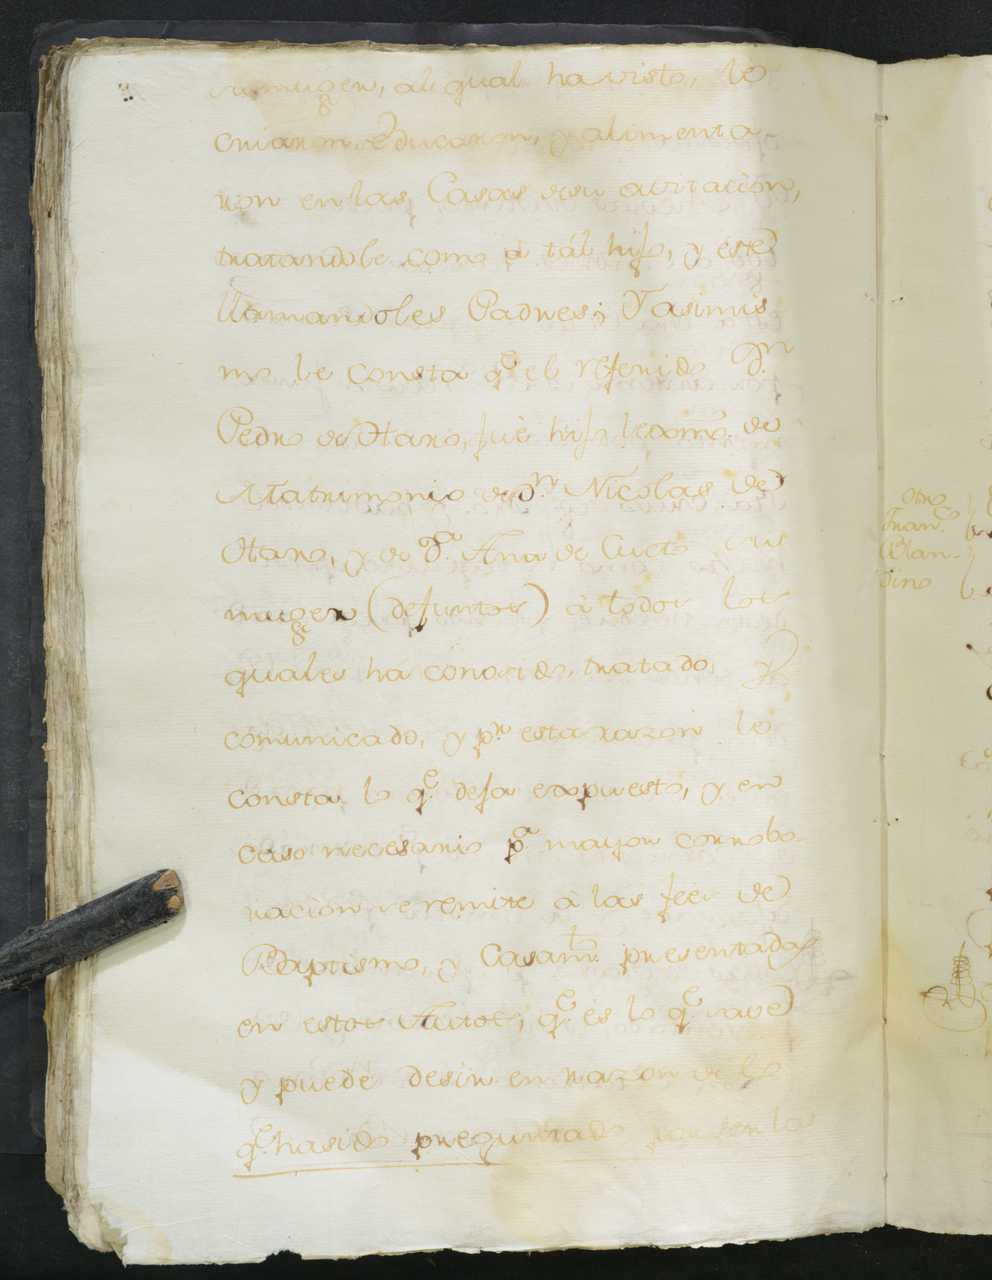 su muger, al qual ha visto, le
criaron, educaron, y alimenta
ron en las Casas de su avitacion,
tratandole como à tál hijo, y este
llamandoles Padres; Y asimis
mo le consta q.e el referido D.n
Pedro de Otaro, fuè hijo lexmo, de
Matrimonio de D.n Nicolas de
Otaro, y de D.a Ana de Cueto sus
muger (defuntos) à todos los
quales ha conosido, tratado, y
comunicado, y p.r esta razon le
consta lo q.e deja expuesto, y en
caso necesario p.a mayor corrobo-
racion se remite à las feés de
Baptismo, y Casam.to presentadas
en estos Autos; q.e es lo q.e save
y puede desir en razon de lo
q.e ha sido preguntado
Otro
Fran.co
Blan-
dino